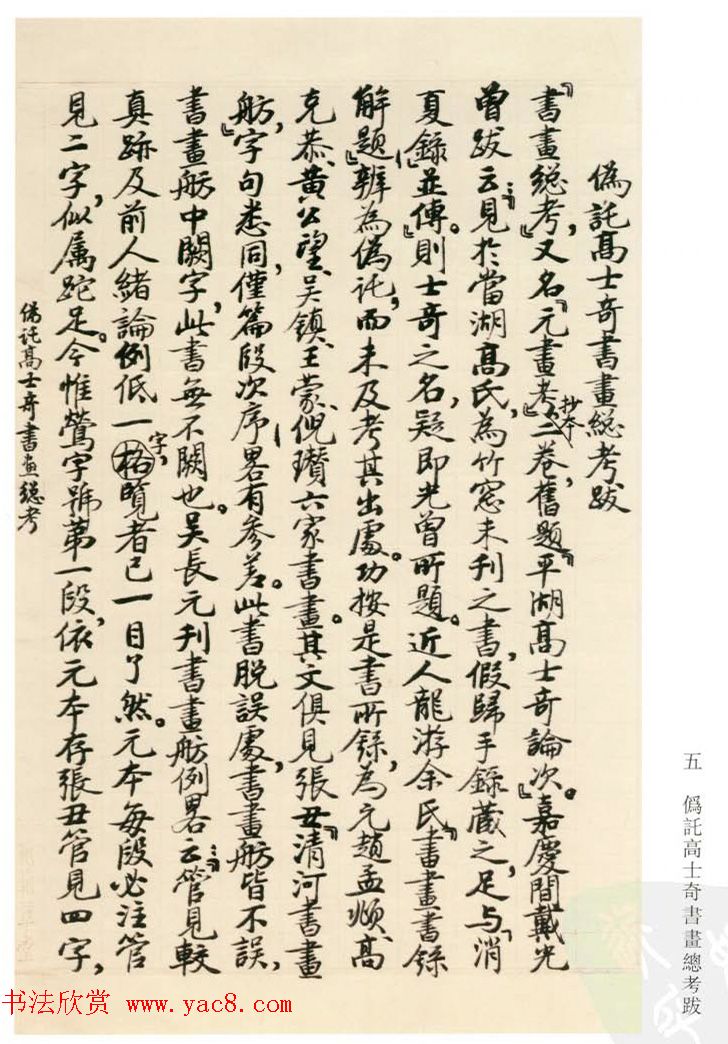 偽託高士奇書畫總考跋
『書畫總考』，又名『元畫考』抄本二卷，舊題『平湖高士奇論次。』嘉慶間戴光
曾跋云：『見於當湖高氏，為竹窓未刊之書，假歸手錄藏之，足与『消
夏錄』並傳。』則士奇之名，疑即光曾所題。近人龍游余氏『書畫書錄
解題』辨為偽託，而未及考其出處。功按是書所錄，為元趙孟頫、高
克恭、黄公望、吴镇、王蒙、倪瓚六家書畫。其文俱見張丑『清河書畫
舫』，字句悉同，僅篇段次序畧有參差。此書脱誤處，書畫舫皆不誤，
書畫舫中闕字，此書無不闕也。吴長元刊書畫舫例畧云：『管見較
真跡及前人緒論例低一格字，覽者已一目了然。元本每段必注管
見二字，似属蛇足。今惟鶯字號第一段，依元本存張丑管見四字，
偽託高士奇書畫總考
五 偽託高士奇書畫總考跋
书法欣赏 www.yac8.com